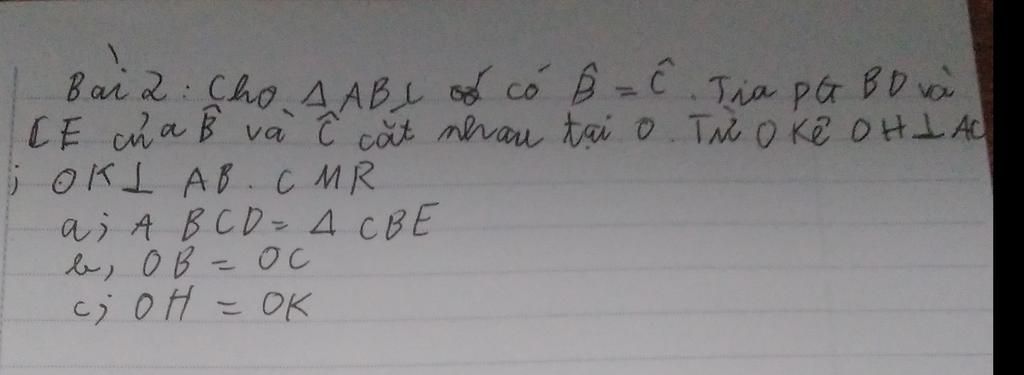 Bài 2: Cho Δ ABC có B̂ = Ĉ. Tia pG BD và
CE của B̂ và Ĉ cắt nhau tại O. Từ O Kẻ OH⊥AC
; OK⊥ AB. CMR
a; Δ BCD = Δ CBE
b, OB = OC
c; OH = OK